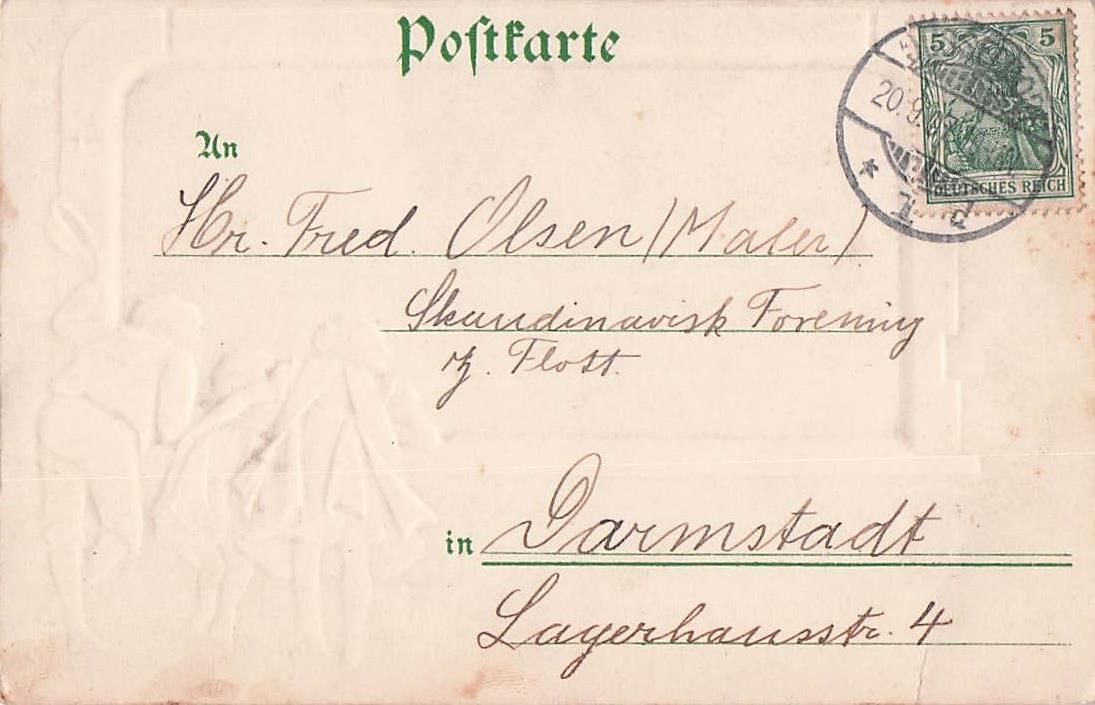 Postkarte
5 5
DEUTSCHES REICH
20.9.
An
Hr. Fred. Olsen (Maler)
Skandinavisk Forening
z. Flott.
in Darmstadt
Lagerhausstr. 4